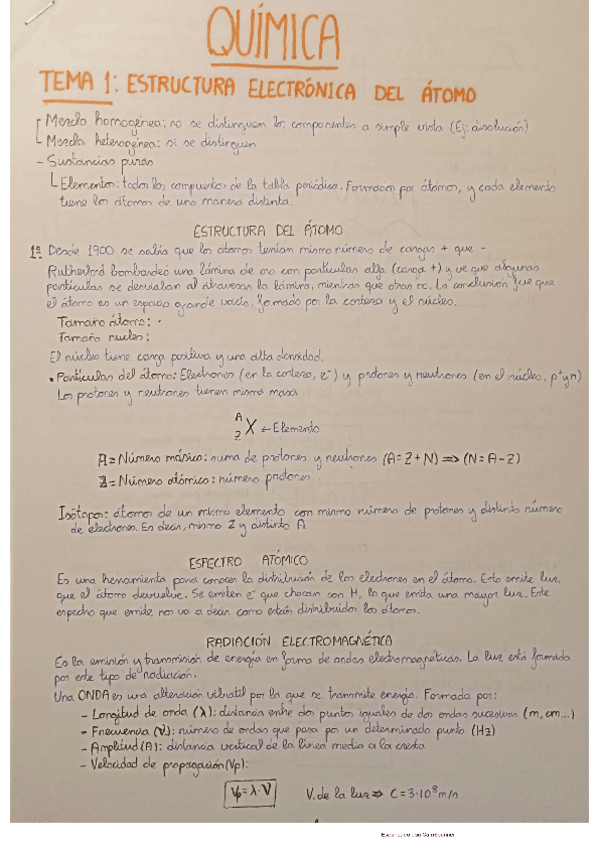 QUÍMICA
TEMA 1: ESTRUCTURA ELECTRÓNICA DEL ÁTOMO
Mezcla homogénea: no se distinguen los componentes a simple vista (Ej: disolución)
Mezcla heterogénea: si se distinguen
- Sustancias puras
Elementos: todos los compuestos de la tabla periódica. Formados por átomos, y cada elemento
tiene los átomos de una manera distinta.
ESTRUCTURA DEL ÁTOMO
1º Desde 1900 se sabía que los átomos tenían mismo número de cargas + que -
Rutherford bombardeó una lámina de oro con partículas alfa (carga +) y ve que algunas
partículas se desviaban al atravesar la lámina, mientras que otras no. La conclusión fue que
el átomo es un espacio grande vacío, formado por la corteza y el núcleo.
Tamaño átomo: -
Tamaño nucleo:
El núcleo tiene carga positiva y una alta densidad.
• Partículas del átomo: Electrones (en la corteza, e⁻) y protones y neutrones (en el núcleo, p⁺ y n)
Los protones y neutrones tienen misma masa
A
Z X ← Elemento
A = Número másico: suma de protones y neutrones (A = Z + N) ⇒ (N = A - Z)
Z = Número atómico: número protones
Isótopos: átomos de un mismo elemento con mismo número de protones y distinto número
de electrones. Es decir, mismo Z y distinto A.
ESPECTRO ATÓMICO
Es una herramienta para conocer la distribución de los electrones en el átomo. Esto emite luz,
que el átomo devuelve. Se emiten e⁻ que chocan con H, lo que emita una mayor luz. Este
espectro que emite nos va a decir como están distribuidos los átomos.
RADIACIÓN ELECTROMAGNÉTICA
Es la emisión y transmisión de energía en forma de ondas electromagnéticas. La luz está formada
por este tipo de radiación.
Una ONDA es una alteración vibratil por la que se transmite energía. Formada por:
- Longitud de onda (λ): distancia entre dos puntos iguales de dos ondas sucesivas (m, cm...)
- Frecuencia (ν): número de ondas que pasa por un determinado punto (Hz)
- Amplitud (A): distancia vertical de la línea media a la cresta
- Velocidad de propagación (Vp):
Vp = λ · ν V. de la luz ⇒ C = 3·10⁸ m/s